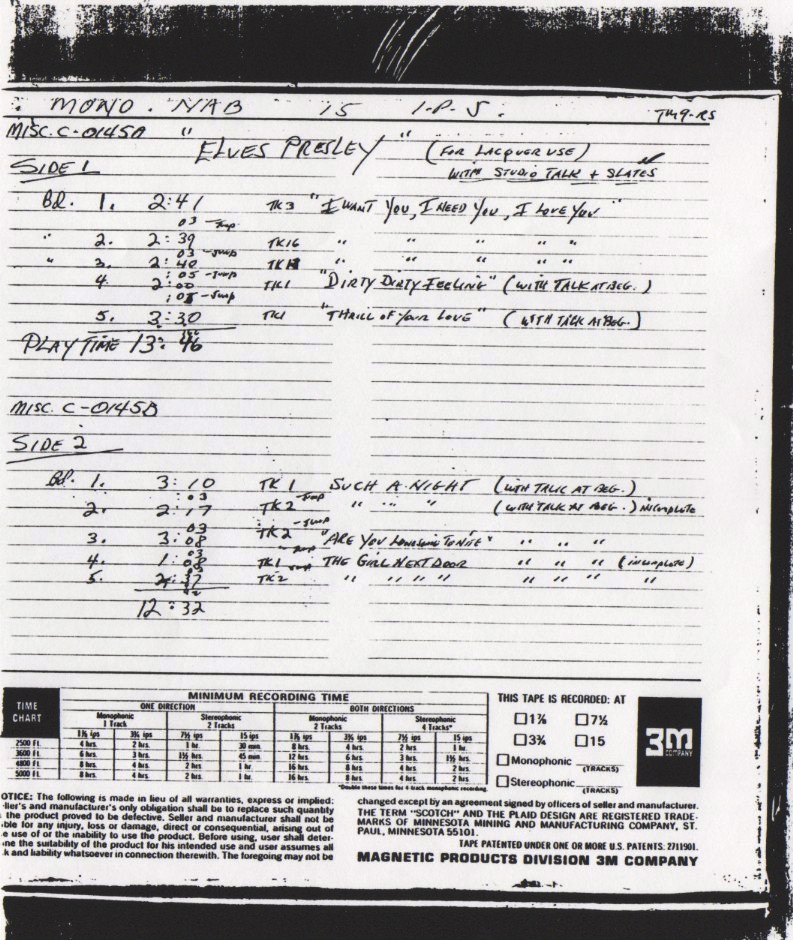 MONO. NAB 15 I-P-S.
MISC. C-0145A "ELVES PRESLEY" (FOR LACQUER USE)
SIDE 1 WITH STUDIO TALK + SLATES
Bd. 1. 2:41 TK3 "I WANT YOU, I NEED YOU, I LOVE YOU"
03 -Jump
" 2. 2:39 TK16 " " " " "
03 -Jump
" 3. 2:40 " " " " "
:05 -Jump
4. 2:00 TK1 "DIRTY DIRTY FEELING" (WITH TALK AT BEG.)
:05 -Jump
5. 3:30 TK1 "THRILL OF YOUR LOVE" (WITH TALK AT BEG.)
PLAY TIME 13:46
MISC. C-0145B
SIDE 2
Bd. 1. 3:10 TK 1 SUCH A NIGHT (WITH TALK AT BEG.)
:03 -Jump
2. 2:17 TK2 " " " (WITH TALK AT BEG.) INCOMPLETE
03 -Jump
3. 3:08 TK2 "ARE YOU LONESOME TO NITE" " " "
03 -Jump
4. 1:08 TK1 THE GIRL NEXT DOOR " " " (incomplete)
5. 2:37 TK2 " " " " " " " "
12:32
TIME CHART
MINIMUM RECORDING TIME
ONE DIRECTION BOTH DIRECTIONS
Monophonic 1 Track Stereophonic 2 Tracks Monophonic 2 Tracks Stereophonic 4 Tracks*
1⅞ ips 3¾ ips 7½ ips 15 ips 1⅞ ips 3¾ ips 7½ ips 15 ips
2500 Ft. 4 hrs. 2 hrs. 1 hr. 30 min. 8 hrs. 4 hrs. 2 hrs. 1 hr.
3600 Ft. 6 hrs. 3 hrs. 1½ hrs. 45 min. 12 hrs. 6 hrs. 3 hrs. 1½ hrs.
4800 Ft. 8 hrs. 4 hrs. 2 hrs. 1 hr. 16 hrs. 8 hrs. 4 hrs. 2 hrs.
5000 Ft. 8 hrs. 4 hrs. 2 hrs. 1 hr. 16 hrs. 8 hrs. 4 hrs. 2 hrs.
*Double these times for 4 track monophonic recording.
THIS TAPE IS RECORDED: AT
1⅞ 7½
3¾ 15
Monophonic (TRACKS)
Stereophonic (TRACKS)
3M COMPANY
OTICE: The following is made in lieu of all warranties, express or implied:
ller's and manufacturer's only obligation shall be to replace such quantity
the product proved to be defective. Seller and manufacturer shall not be
ble for any injury, loss or damage, direct or consequential, arising out of
e use of or the inability to use the product. Before using, user shall deter-
ne the suitability of the product for his intended use and user assumes all
k and liability whatsoever in connection therewith. The foregoing may not be
changed except by an agreement signed by officers of seller and manufacturer.
THE TERM "SCOTCH" AND THE PLAID DESIGN ARE REGISTERED TRADE-
MARKS OF MINNESOTA MINING AND MANUFACTURING COMPANY, ST.
PAUL, MINNESOTA 55101.
TAPE PATENTED UNDER ONE OR MORE U.S. PATENTS: 2711901.
MAGNETIC PRODUCTS DIVISION 3M COMPANY